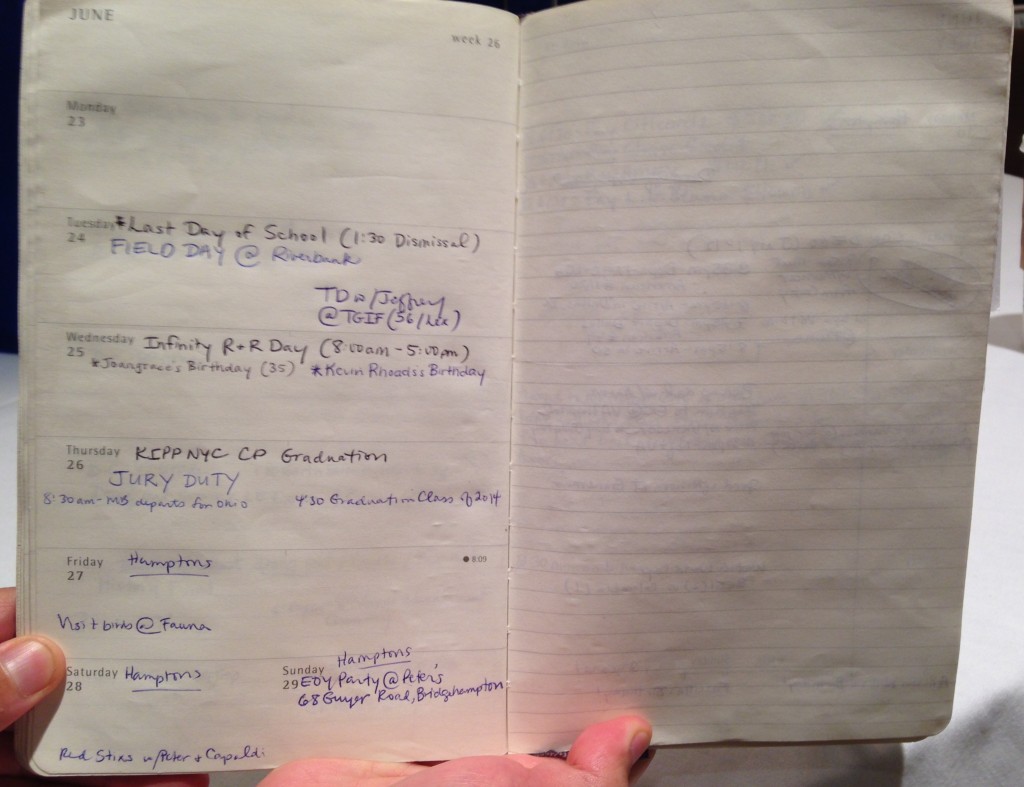 JUNE
week 26
Monday
23
Tuesday *Last Day of School (1:30 Dismissal)
24 FIELD DAY @ Riverbank
TD w/Jeffrey
@TGIF (56/Lex)
Wednesday Infinity R+R Day (8:00am - 5:00pm)
25 *Joangrace's Birthday (35) *Kevin Rhoads's Birthday
Thursday KIPP NYC CP Graduation
26 JURY DUTY
8:30am - MB departs for Ohio 4:30 Graduation Class of 2014
Friday Hamptons 8:09
27
Visit birds @ Fauna
Saturday Hamptons
28
Red Stixs w/Peter + Capaldi
Hamptons
Sunday
29 EOY Party @ Peter's
68 Guyer Road, Bridgehampton